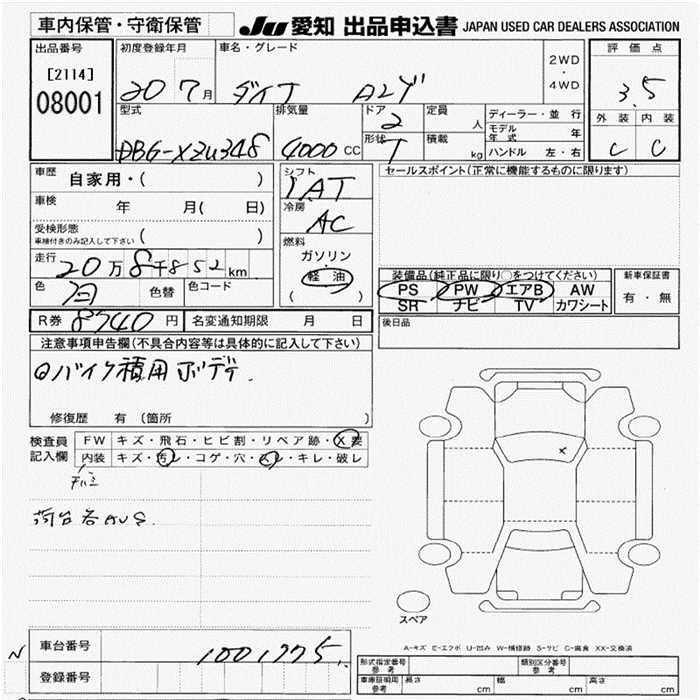 車内保管・守衛保管
JU 愛知 出品申込書 JAPAN USED CAR DEALERS ASSOCIATION
出品番号 初度登録年月 車名・グレード 2WD ・ 4WD 評価点
[2114]
08001 20 7月 3.5
型式 排気量 ドア 2 定員 人 ディーラー・並行 外装 内装
4000 CC 形状 T 積載 kg モデル年式 年 C C
ハンドル 左・右
車歴 自家用・( ) シフト セールスポイント(正常に機能するものに限ります)
車検 年 月( 日) 冷房 AC
受検形態 車検付きのみ記入して下さい ( ) 燃料
ガソリン
走行 20万8千852km 軽油 装備品(純正品に限り○をつけてください) 新車保証書
色 色替 色コード ( ) PS PW エアB AW 有・無
SR ナビ TV カワシート
R券 8740円 名変通知期限 月 日 後日品
注意事項申告欄(不具合内容等は具体的に記入して下さい)
バイク積用ボディ.
修復歴 有 (箇所 )
検査員 FW キズ・飛石・ヒビ割・リペア跡・X要
記入欄 内装 キズ・汚レ・コゲ・穴・スレ・キレ・破レ
スペア
A-キズ E-エクボ U-凹み W-補修跡 S-サビ C-腐食 XX-交換済
N 車台番号 1001775
登録番号
形式指定番号 参考 類別区分番号 参考
車庫証明用 参考 長さ cm 幅 cm 高さ cm